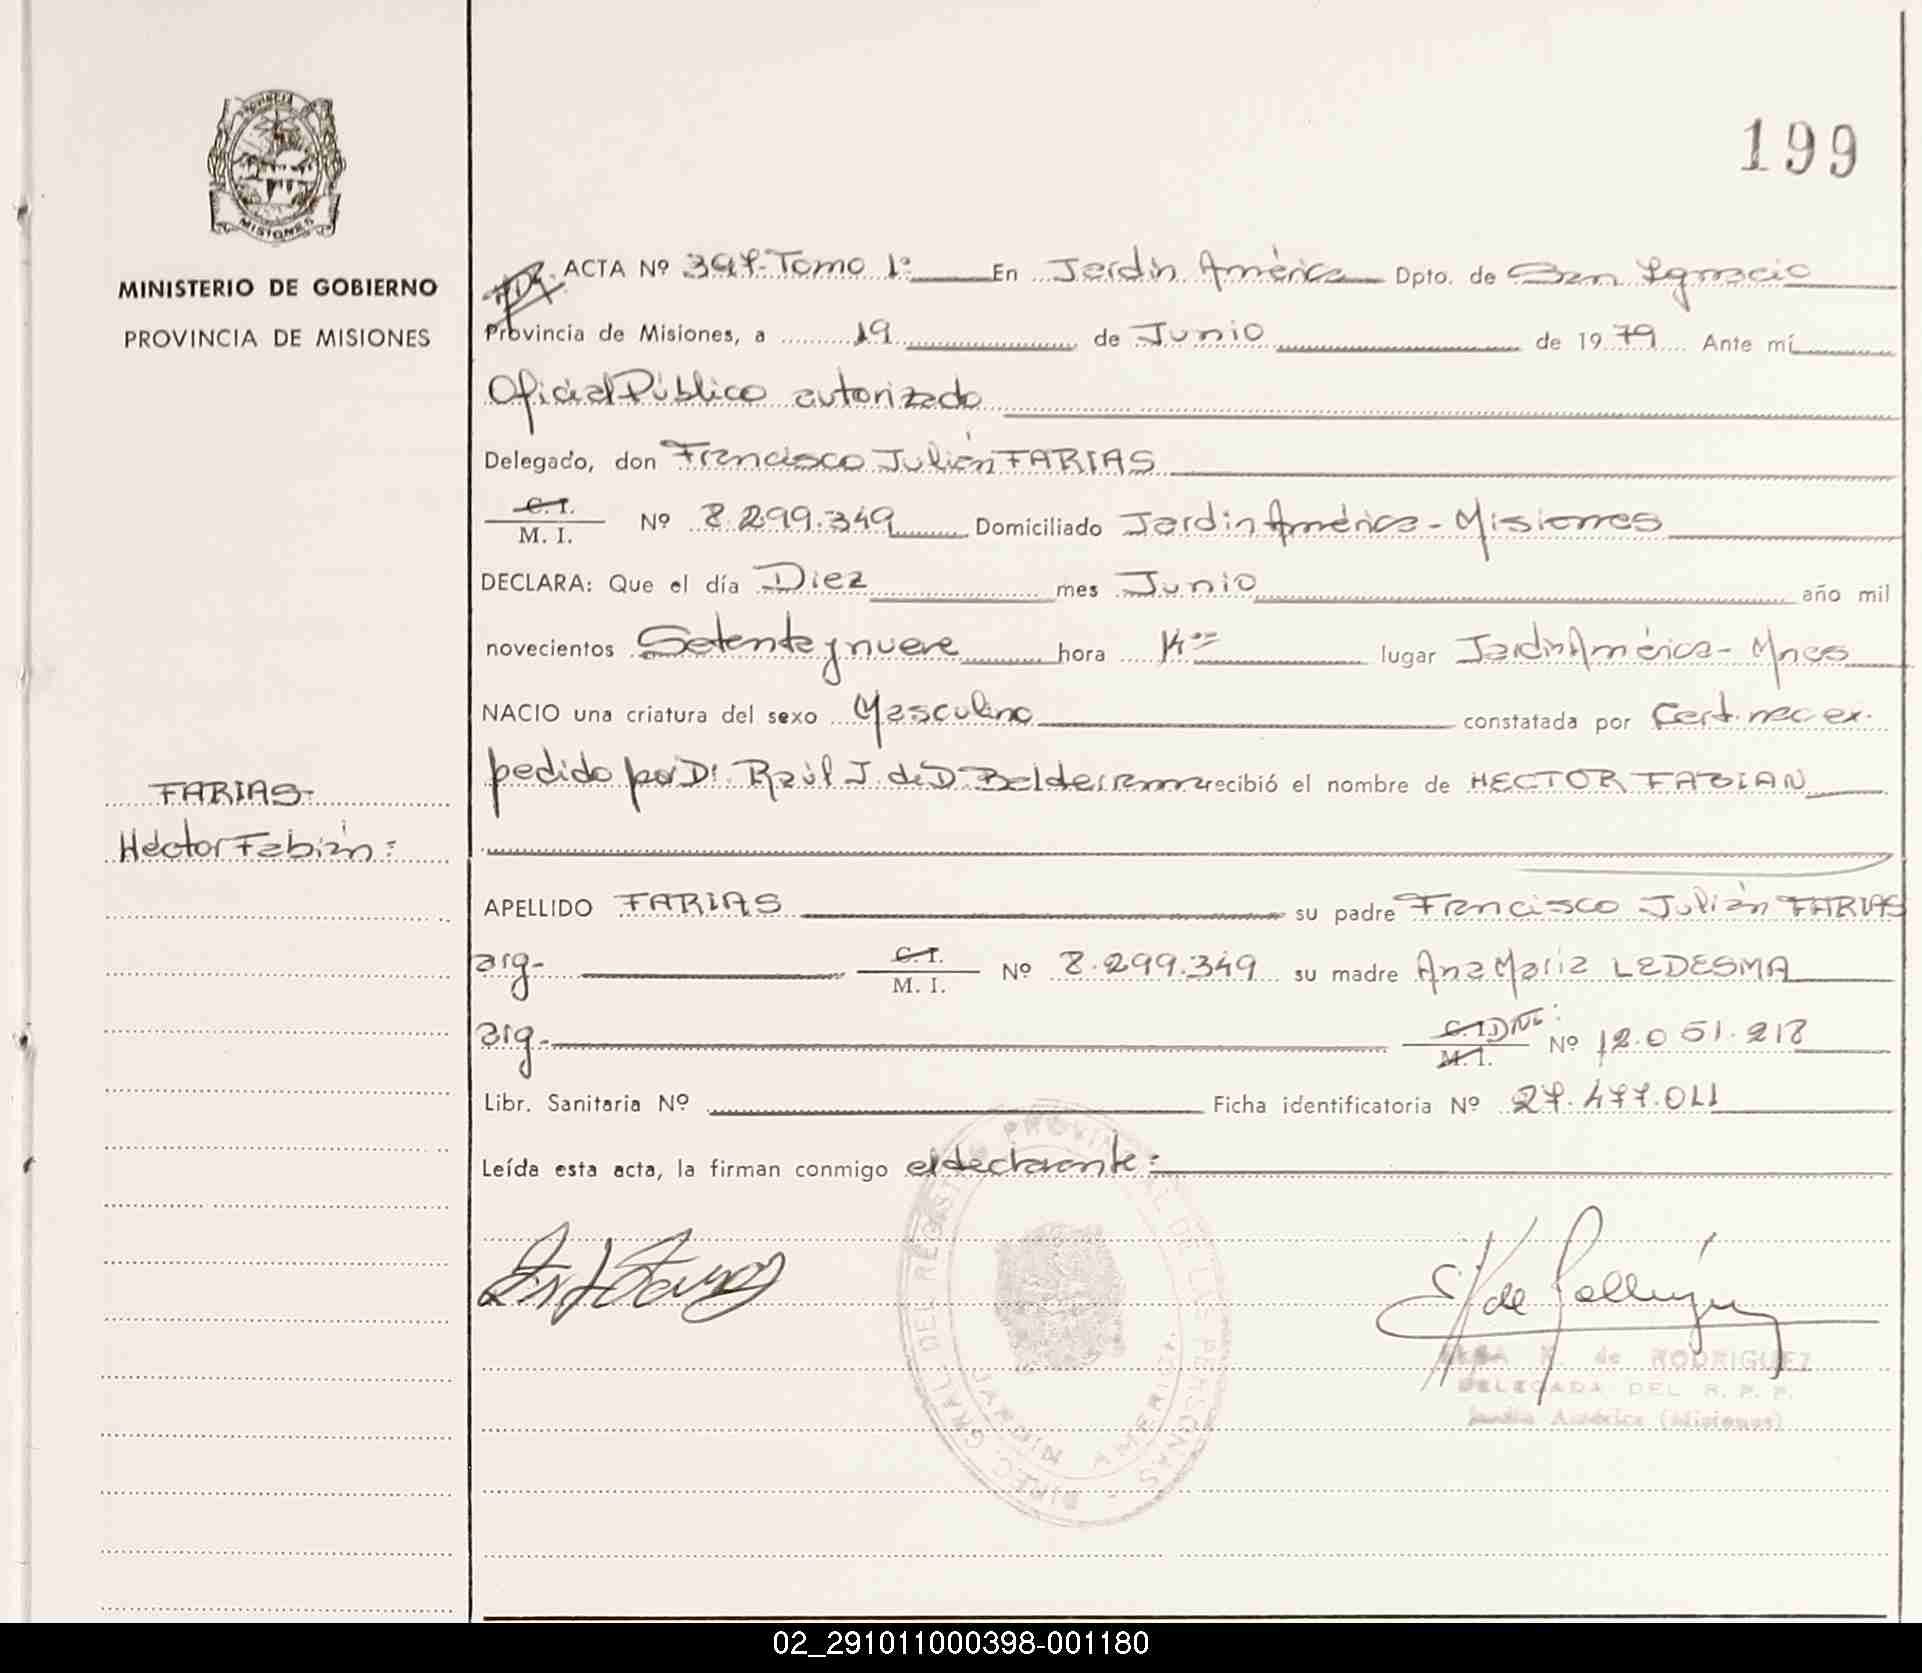 199
PROVINCIA
MISIONES
MINISTERIO DE GOBIERNO
PROVINCIA DE MISIONES
ACTA Nº 397-Tomo 1º En Jardín América Dpto. de San Ignacio
Provincia de Misiones, a 19 de Junio de 1979 Ante mí
Oficial Público autorizado
Delegado, don Francisco Julián FARIAS
C. I.
M. I. Nº 8.299.349 Domiciliado Jardín América - Misiones
DECLARA: Que el día Diez mes Junio año mil
novecientos Setenta y nueve hora lugar Jardín América - Mnes
NACIO una criatura del sexo Masculino constatada por Cert. nac ex.
pedido por Dr. Raúl J. de D. Balderrama recibió el nombre de HECTOR FABIAN
FARIAS-
Héctor Fabián:
APELLIDO FARIAS su padre Francisco Julián FARIAS
arg- C. I.
M. I. Nº 8.299.349 su madre Ana María LEDESMA
arg- C. I. DNI:
M. I. Nº 12.051.218
Libr. Sanitaria Nº Ficha identificatoria Nº 27.477.011
Leída esta acta, la firman conmigo el declarante:
DIREC. GRAL. DEL REGISTRO PROVINCIAL DE LAS PERSONAS
JARDIN AMERICA
K. de RODRIGUEZ
DELEGADA DEL R. P. P.
Jardín América (Misiones)
02_291011000398-001180